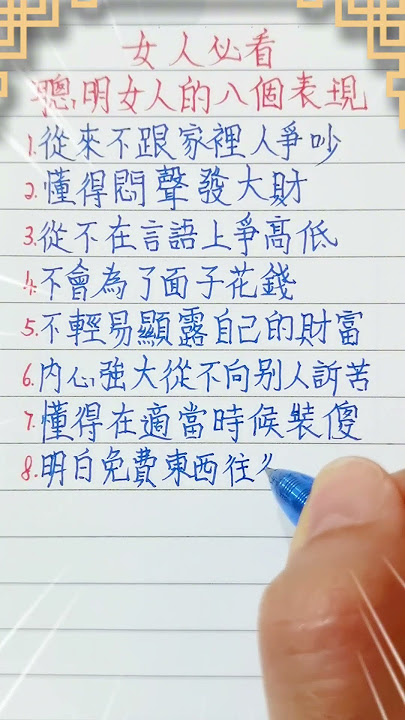 女人必看
聰明女人的八個表現
1.從來不跟家裡人爭吵
2.懂得悶聲發大財
3.從不在言語上爭高低
4.不會為了面子花錢
5.不輕易顯露自己的財富
6.内心強大從不向别人訴苦
7.懂得在適當時候裝傻
8.明白免費東西往